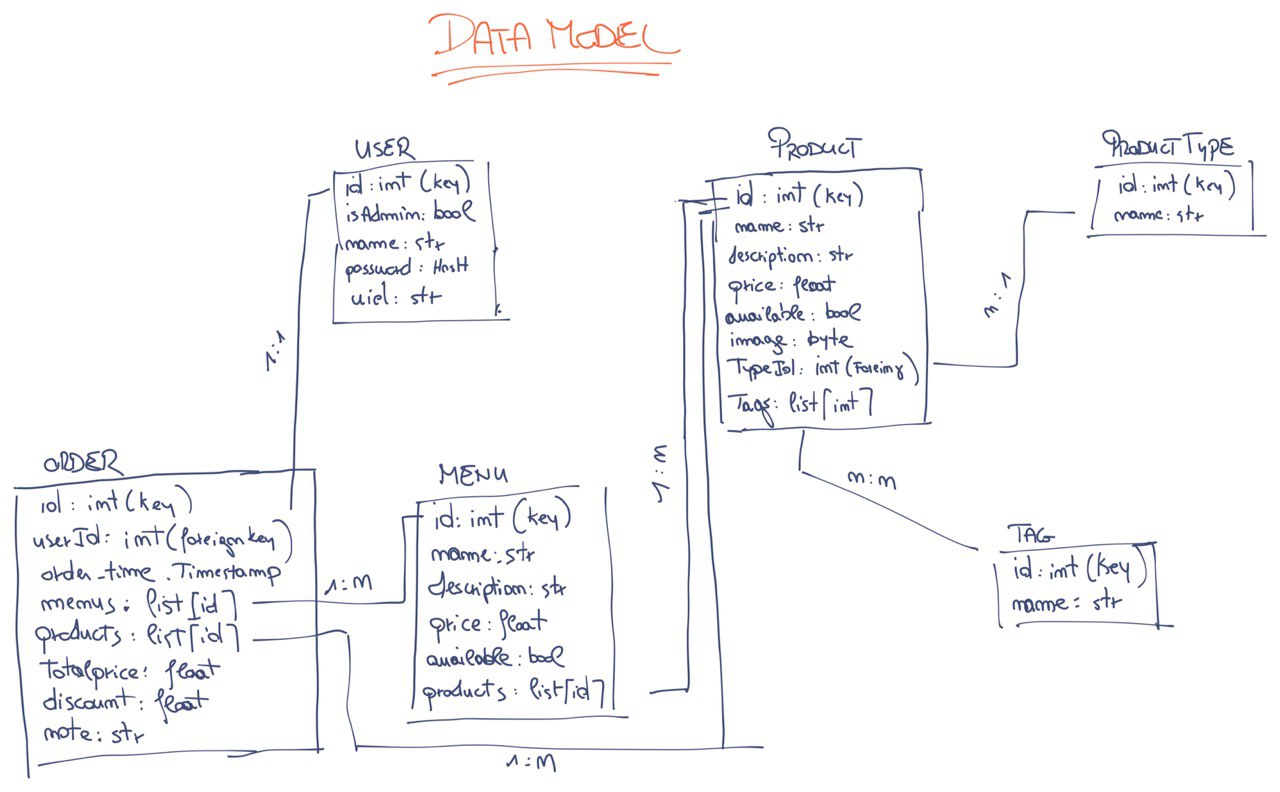 DATA MODEL
USER
id: int (key)
isAdmin: bool
name: str
password: HASH
uid: str
1:1
PRODUCT
id: int (key)
name: str
description: str
price: float
available: bool
image: byte
TypeId: int (Foreing)
Tags: list[int]
PRODUCT TYPE
id: int (key)
name: str
n:1
n:m
TAG
id: int (key)
name: str
ORDER
id: int (key)
userId: int (foreign key)
order_time: Timestamp
menus: list[id]
products: list[id]
Totalprice: float
discount: float
note: str
1:M
MENU
id: int (key)
name: str
description: str
price: float
available: bool
products: list[id]
1:M